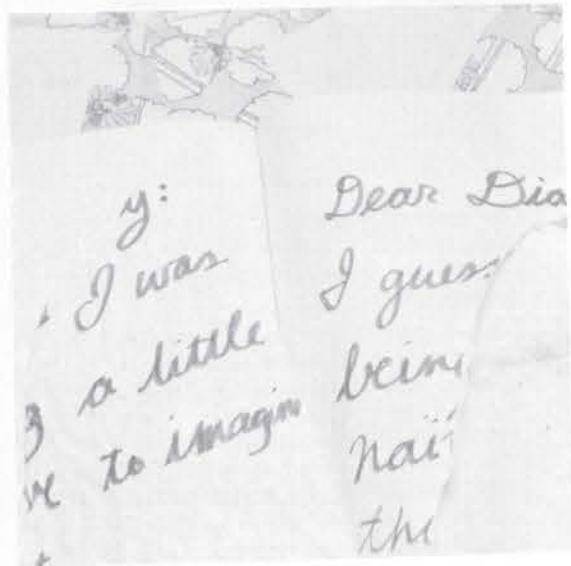 y:
. I was
g a little
ve to imagin
Dear Dia
I gues
bein
naï
the